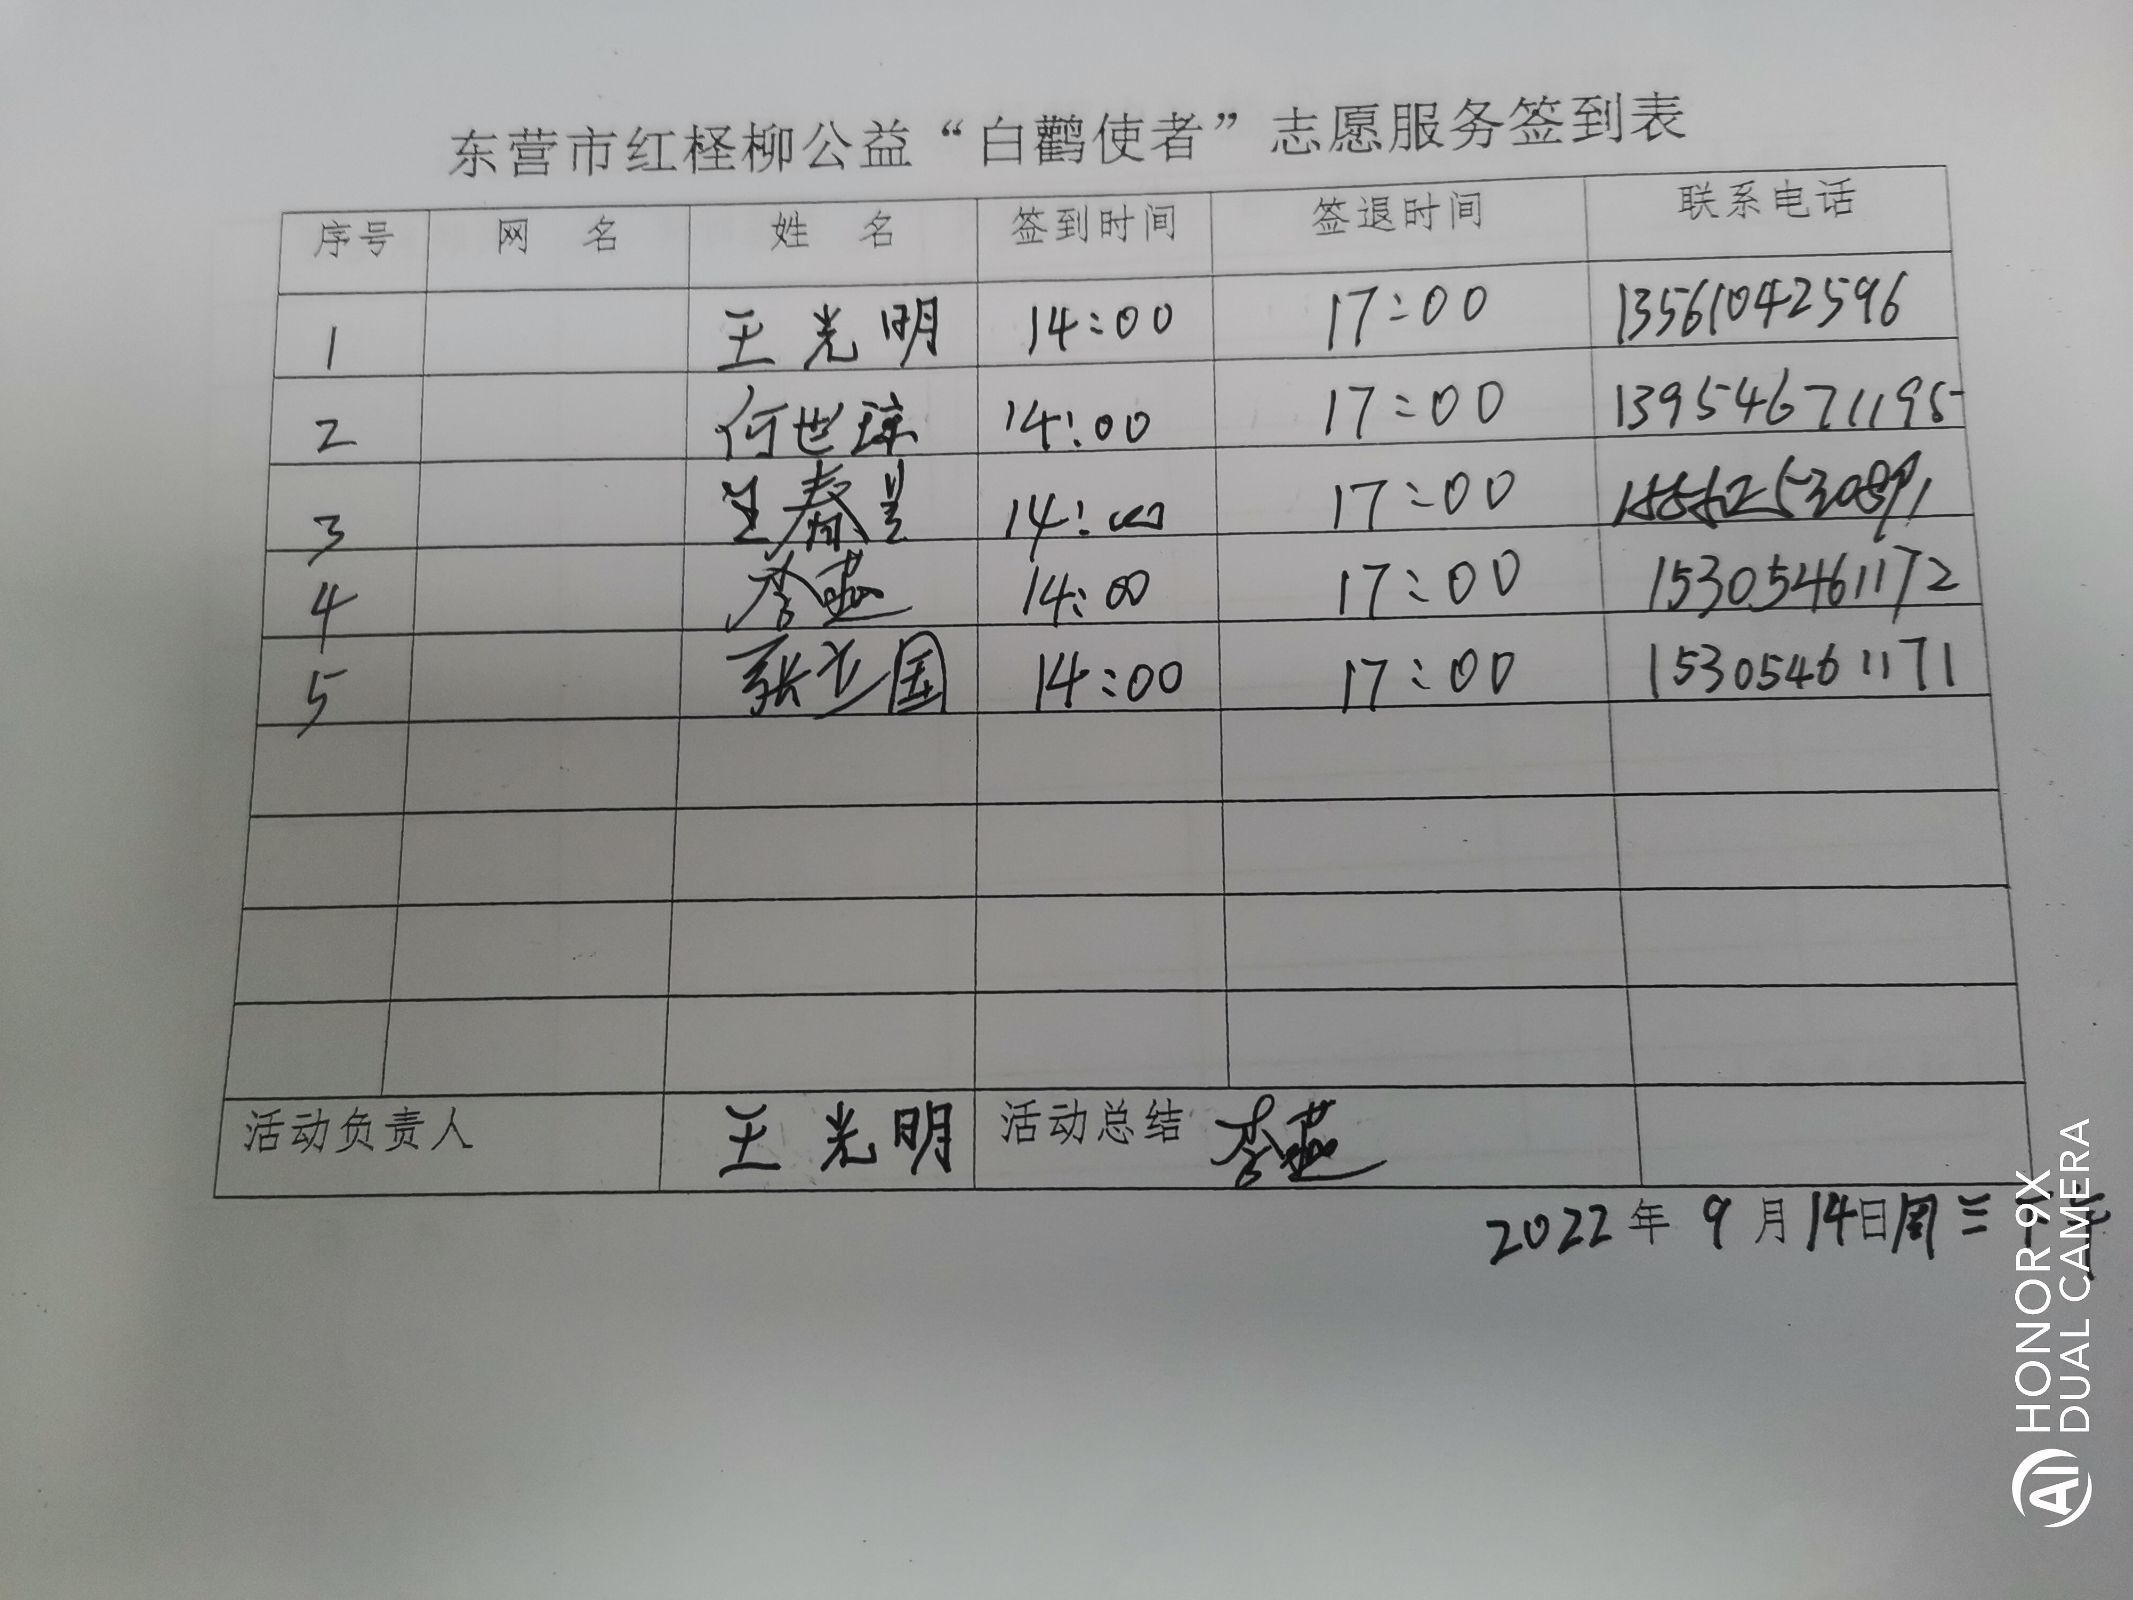 东营市红柽柳公益“白鹳使者”志愿服务签到表
序号 网 名 姓 名 签到时间 签退时间 联系电话
1 王光明 14:00 17:00 13561042596
2 何世琼 14:00 17:00 13954671195
3 王春 14:00 17:00
4 李燕 14:00 17:00 15305461172
5 张志国 14:00 17:00 15305461171
活动负责人 王光明 活动总结 李燕
2022年 9月14日周三下午
HONOR 9X
DUAL CAMERA
AI